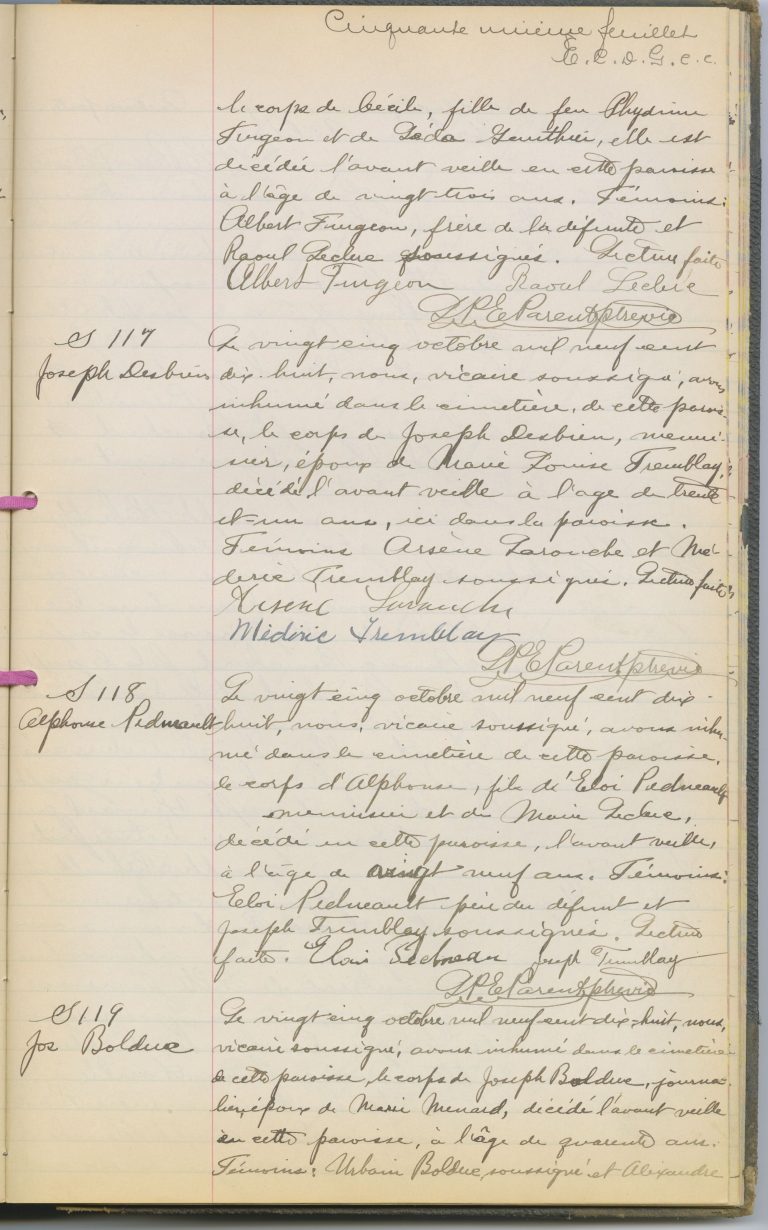 Cinquante unième feuillet
E. C. D. G. c. c.
le corps de Cécile, fille de feu Phydime
Turgeon et de Léda Gauthier, elle est
décédée l'avant veille en cette paroisse
à l'âge de vingt-trois ans. Témoins:
Albert Turgeon, frère de la défunte et
Raoul Leclerc soussignés. Lecture faite
Albert Turgeon Raoul Leclerc
J. P. E. Parent ptre vic
S 117
Joseph Desbien
Le vingt-cinq octobre mil neuf cent
dix-huit, nous, vicaire soussigné, avons
inhumé dans le cimetière, de cette parois-
se, le corps de Joseph Desbien, menui-
sier, époux de Marie Louise Tremblay,
décédé l'avant veille à l'age de trente
et-un ans, ici dans la paroisse.
Témoins Arsène Larouche et Mé-
déric Tremblay soussignés. Lecture faite
Arsene Larouche
Médéric Tremblay
J. P. E. Parent ptre vic
S 118
Alphonse Pedneault
Le vingt cinq octobre mil neuf cent dix-
huit, nous, vicaire soussigné, avons inhu-
mé dans le cimetière de cette paroisse,
le corps d'Alphonse, fils d'Eloi Pedneault
menuisier et de Marie Leclerc,
décédé en cette paroisse, l'avant veille,
à l'âge de vingt neuf ans. Témoins:
Eloi Pedneault père du défunt et
Joseph Tremblay soussignés. Lecture
faite. Elois Joseph Tremblay
J. P. E. Parent ptre vic
S 119
Jos Bolduc
Le vingt cinq octobre mil neuf cent dix-huit, nous,
vicaire soussigné, avons inhumé dans le cimetière
de cette paroisse, le corps de Joseph Bolduc, journa-
lier, époux de Marie Menard, décédé l'avant veille
en cette paroisse, à l'âge de quarente ans.
Témoins: Urbain Bolduc, soussigné et Alexandre